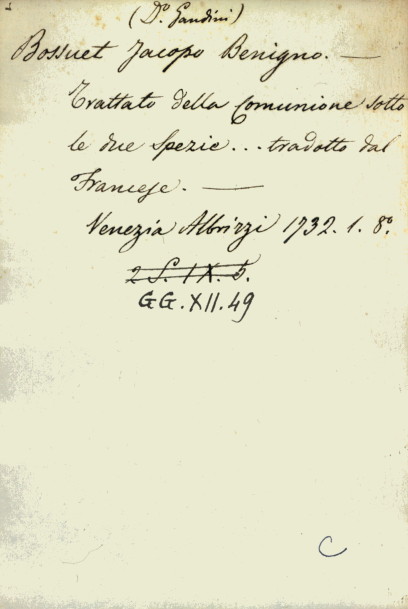 (Dº. Gandini)
Bossuet Jacopo Benigno. —
Trattato della Comunione sotto
le due spezie... tradotto dal
Francese. —
Venezia Albrizzi 1732. 1. 8º.
2 S. IX. 5.
GG.XII.49
C